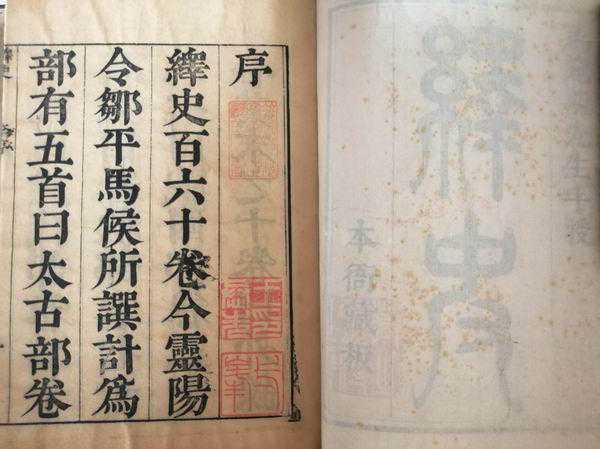 繹史
本衙藏板
序
繹史百六十卷今靈陽
令鄒平馬侯所譔計爲
部有五首曰太古部卷